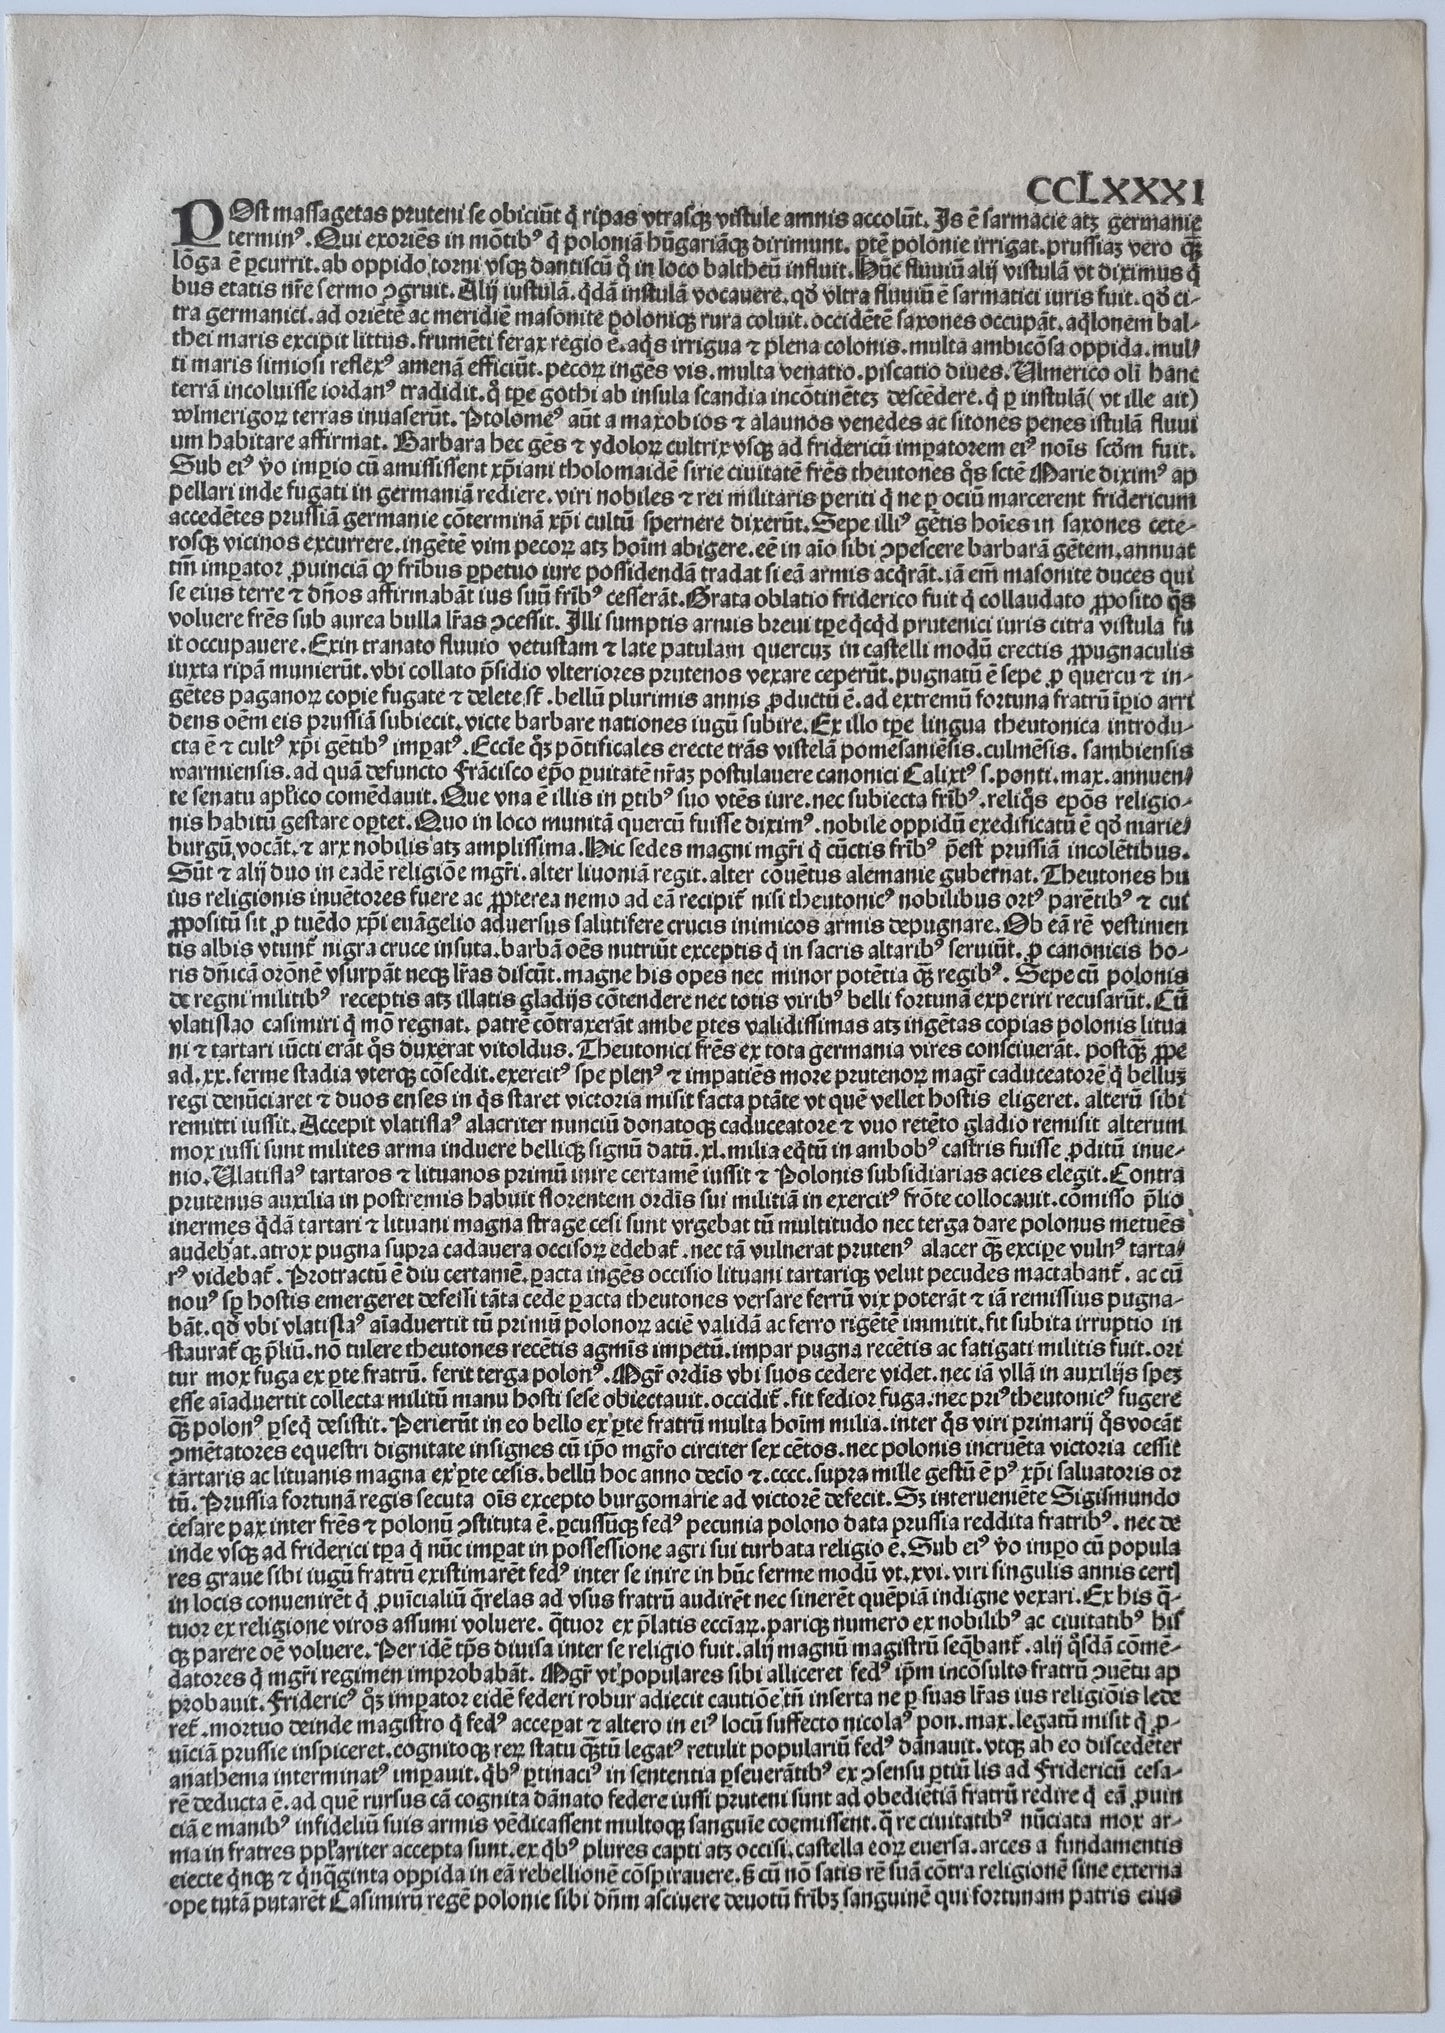 CCLXXXI
POst massagetas pruteni se obiciūt q̄ ripas vtrasq̨ vistule amnis accolūt. Is ē sarmacie atq̨ germanie
terminꝰ. Qui exoriēs in mōtibꝰ q̄ poloniā hūgariāq̨ dirimunt. ꝑtē polonie irrigat. prussiaꝫ vero q̄ꝫ
lōga ē ꝑcurrit. ab oppido torni vsq̨ dantiscū qͦ in loco baltheū influit. Hūc fluuiū alij vistulā vt diximus q̄
bus etatis nr̄e sermo ꝯgruit. Alij iustulā. q̄dā instulā vocauere. qđ vltra fluuiū ē sarmatici iuris fuit. qđ ci-
tra germanici. ad oriētē ac meridiē masonite poloniq̨ rura coluit. occidētē saxones occupāt. aq̄lonem bal-
thei maris excipit littus. frumēti ferax regio ē. aq̄s irrigua ⁊ plena colonis. multa ambicōsa oppida. mul-
ti maris simiosi reflexꝰ amenā efficiūt. pecoꝝ ingēs vis. multa venatio. piscatio diues. Vlmerico oli hanc
terrā incoluisse iordanꝰ tradidit. qͦ tꝑe gothi ab insula scandia incōtinēteꝫ descēdere. q̄ ꝑ instulā (vt ille ait)
wlmerigoꝝ terras inuaserūt. Ptolomeꝰ aūt a maxobios ⁊ alaunos venedes ac sitones penes istulā fluui
um habitare affirmat. Barbara hec gēs ⁊ ydoloꝝ cultrix vsq̨ ad fridericū imꝑatorem eiꝰ noīs scđm fuit.
Sub eiꝰ v̄o imꝑio cū amisissent xp̄iani tholomaidē sirie ciuitatē frēs theutones qͦs scтē Marie diximꝰ ap
pellari inde fugati in germaniā rediere. viri nobiles ⁊ rei militaris periti q̄ ne ꝑ ociū marcerent fridericum
accedētes prussiā germanie cōterminā xp̄i cultū spernere dixerūt. Sepe illiꝰ gētis hoīes in saxones cete-
rosq̨ vicinos excurrere. ingētē vim pecoꝝ atq̨ hoīm abigere. eē in aīo sibi ꝯpescere barbarā gētem. annuat
tm̄ imꝑator ꝓuinciā qꝫ fr̄ibus ꝑpetuo iure possidendā tradat si eā armis acq̄rāt. iā em̄ masonite duces qui
se eius terre ⁊ dn̄os affirmabāt ius suū fr̄ibꝰ cesserāt. Grata oblatio friderico fuit q̄ collaudato ꝓposito q̄s
voluere frēs sub aurea bulla lr̄as ꝯcessit. Illi sumptis armis breui tꝑe q̄cq̄d prutenici iuris citra vistulā fu
it occupauere. Exin tranato fluuio vetustam ⁊ late patulam quercuꝫ in castelli modū erectis ꝓpugnaculis
iuxta ripā munierūt. vbi collato p̄sidio vlteriores prutenos vexare ceperūt. pugnatū ē sepe ꝓ quercu ⁊ in-
gētes paganoꝝ copie fugate ⁊ delete st̄. bellū plurimis annis ꝓductū ē. ad extremū fortuna fratrū īꝑio arri
dens oēm eis prussiā subiecit. victe barbare nationes iugū subire. Ex illo tꝑe lingua theutonica introdu-
cta ē ⁊ cultꝰ xp̄i gētibꝰ imꝑatꝰ. Eccīe qͦꝫ pōtificales erecte trās vistelā pomesaniēsis. culmēsis. sambiensis
warmiensis. ad quā defuncto Frācisco ep̄o ꝑuitatē nr̄aꝫ postulauere canonici Calixtꝰ s. ponti. max. annuen-
te senatu apl̄ico comēdauit. Que vna ē illis in ꝑtibꝰ suo vtēs iure. nec subiecta fr̄ibꝰ. reliqͦs ep̄os religio-
nis habitū gestare oꝑtet. Quo in loco munitā quercū fuisse diximꝰ. nobile oppidū exedificatū ē qđ marie-
burgū vocāt. ⁊ arx nobilis atq̨ amplissima. Hic sedes magni mgr̄i q̄ cūctis fr̄ibꝰ p̄est prussiā incolētibus.
Sūt ⁊ alij duo in eadē religiōe mgr̄i. alter liuoniā regit. alter cōuētus alemanie gubernat. Theutones hu
ius religionis inuētores fuere ac ꝓpterea nemo ad eā recipit̄ nisi theutonicꝰ nobilibus ortꝰ parētibꝰ ⁊ cui
ꝓpositū sit ꝓ tuēdo xp̄i euāgelio aduersus salutifere crucis inimicos armis depugnare. Ob eā rē vestimen
tis albis vtunt̄ nigra cruce insuta. barbā oēs nutriūt exceptis q̄ in sacris altaribꝰ seruiūt. ꝓ canonicis ho-
ris dn̄icā orōnē vsurpāt neq̨ lr̄as discūt. magne his opes nec minor potētia q̄ꝫ regibꝰ. Sepe cū polonis
de regni militibꝰ receptis atq̨ illatis gladijs cōtendere nec totis viribꝰ belli fortunā experiri recusarūt. Cū
vlatislao casimiri q̄ mō regnat. patrē cōtraxerāt ambe ꝑtes validissimas atq̨ ingētas copias polonis litua
ni ⁊ tartari iūcti erāt qͦs duxerat vitoldus. Theutonici frēs ex tota germania vires consciuerāt. postq̄ꝫ ꝓpe
ad. xx. ferme stadia vterq̨ cōsedit. exercitꝰ spe plenꝰ ⁊ impatiēs more prutenoꝝ magr̄ caduceatorē q̄ belluꝫ
regi denūciaret ⁊ duos enses in q̄s staret victoria misit facta ptāte vt quē vellet hostis eligeret. alterū sibi
remitti iussit. Accepit vlatislaꝰ alacriter nunciū donatoq̨ caduceatore ⁊ vuo retēto gladio remisit alterum
mox iussi sunt milites arma induere belliq̨ signū datū. xl. milia eq̄tū in ambobꝰ castris fuisse ꝓditū inue-
nio. Vlatislaꝰ tartaros ⁊ lituanos primū inire certamē iussit ⁊ Polonis subsidiarias acies elegit. Contra
prutenus auxilia in postremis habuit florentem ordīs sui militiā in exercitꝰ frōte collocauit. cōmisso p̄lio
inermes q̄dā tartari ⁊ lituani magna strage cesi sunt vrgebat tū multitudo nec terga dare polonus metuēs
audebat. atrox pugna supra cadauera occisoꝝ edebat̄. nec tā vulnerat prutenꝰ alacer q̄ꝫ excipe vulnꝰ tarta-
rꝰ videbat̄. Protractū ē diu certamē. ꝑacta ingēs occisio lituani tartariq̨ velut pecudes mactabant̄. ac cū
nouꝰ sꝑ hostis emergeret defessi tāta cede ꝑacta theutones versare ferrū vix poterāt ⁊ iā remissius pugna-
bāt. qđ vbi vlatislaꝰ aīaduertit tū primū polonoꝝ aciē validā ac ferro rigētē immitit. fit subita irruptio in
staurat̄ q̨ p̄liū. nō tulere theutones recētis agmīs impetū. impar pugna recētis ac fatigati militis fuit. ori
tur mox fuga ex ꝑte fratrū. ferit terga polonꝰ. Mgr̄ ordīs vbi suos cedere videt. nec iā vllā in auxilijs speꝫ
esse aīaduertit collecta militū manu hosti sese obiectauit. occidit̄. fit fedior fuga. nec priꝰ theutonicꝰ fugere
q̄ꝫ polonꝰ ꝑseq̄ desistit. Perierūt in eo bello ex ꝑte fratrū multa hoīm milia. inter qͦs viri primarij qͦs vocāt
ꝯmētatores equestri dignitate insignes cū ip̄o mgr̄o circiter sex cētos. nec polonis incruēta victoria cessit
tartaris ac lituanis magna ex ꝑte cesis. bellū hoc anno decīo ⁊. cccc. supra mille gestū ē pꝰ xp̄i saluatoris or
tū. Prussia fortunā regis secuta oīs excepto burgomarie ad victorē defecit. Sꝫ interueniēte Sigismundo
cesare pax inter frēs ⁊ polonū ꝯstituta ē. ꝑcussūq̨ fedꝰ pecunia polono data prussia reddita fratribꝰ. nec de
inde vsq̨ ad friderici tꝑa q̄ nūc imꝑat in possessione agri sui turbata religio ē. Sub eiꝰ v̄o imꝑo cū popula
res graue sibi iugū fratrū existimarēt fedꝰ inter se inire in hūc ferme modū vt. xvi. viri singulis annis certꝭ
in locis conuenirēt q̄ ꝓuīcialiū q̄relas ad vsus fratrū audirēt nec sinerēt quēpiā indigne vexari. Ex his q̄-
tuor ex religione viros assumi voluere. q̄tuor ex p̄latis eccīaꝝ. pariq̨ numero ex nobilibꝰ ac ciuitatibꝰ his
q̨ parere oē voluere. Per idē tꝑs diuisa inter se religio fuit. alij magnū magistrū seq̄bant̄. alij qͦsdā cōmē-
datores q̄ mgr̄i regimen improbabāt. Mgr̄ vt populares sibi alliceret fedꝰ ip̄m incōsulto fratrū ꝯuētu ap
probauit. Fridericꝰ qͦꝫ imꝑator eidē federi robur adiecit cautiōe tn̄ inserta ne ꝑ suas lr̄as ius religiōis lede
ret̄. mortuo deinde magistro q̄ fedꝰ acceꝑat ⁊ altero in eiꝰ locū suffecto nicolaꝰ pon. max. legatū misit q̄ ꝓ-
uīciā prussie inspiceret. cognitoq̨ reꝝ statu q̄ꝫtū legatꝰ retulit populariū fedꝰ dānauit. vtq̨ ab eo discedēter
anathema interminatꝰ imꝑauit. q̄bꝰ ꝑtinaciꝰ in sententia ꝑseuerātibꝰ ex ꝯsensu ꝑtiū lis ad Fridericū cesa-
rē deducta ē. ad quē rursus cā cognita dānato federe iussi pruteni sunt ad obediētiā fratrū redire q̄ eā ꝓuin
ciā e manibꝰ infideliū suis armis vēdicassent multoq̨ sanguīe coemissent. q̄ re ciuitatibꝰ nūciata mox ar-
ma in fratres ppl̄ariter accepta sunt. ex q̄bꝰ plures capti atq̨ occisi. castella eoꝝ euersa. arces a fundamentis
eiecte q̄nq̨ ⁊ q̄nq̄ginta oppida in eā rebellionē cōspirauere. ꝫ cū nō satis rē suā cōtra religionē sine externa
ope tutā putarēt Casimirū regē polonie sibi dn̄m asciuere deuotū fr̄ibꝫ sanguinē qui fortunam patris eius